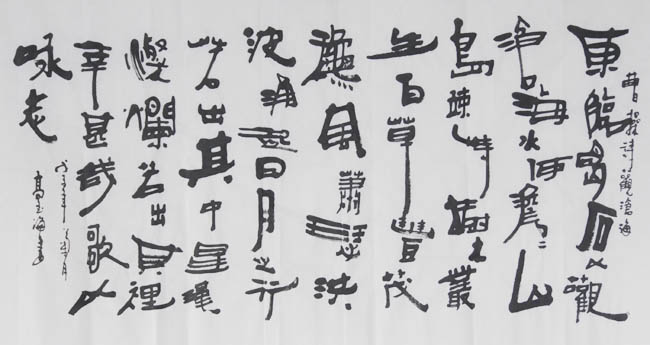 曹操詩觀滄海
東臨碣石以觀
滄海水何澹々山
島竦峙樹木叢
生百草豐茂
風蕭瑟洪
波涌起日月之行
若出其中星漢
燦爛若出其裡
幸甚哉歌以
咏志
年月
高玉海書